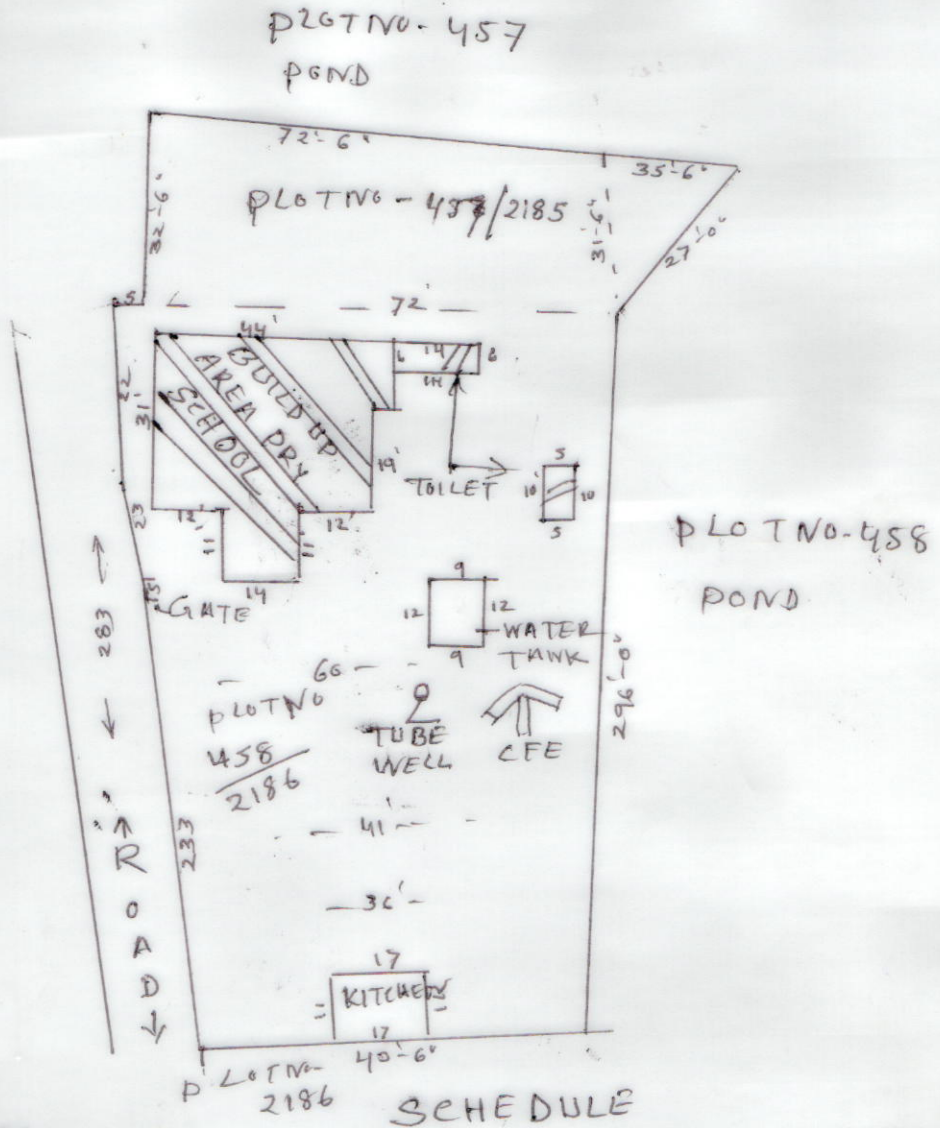 PLOT NO- 457
POND
72'-6"
35'-6"
32'-6"
PLOT NO - 457/2185
31'-6"
27'-0"
5
72'
44'
14
6
8
14
22
31'
BUILD UP
AREA PRY
SCHOOL
19'
TOILET
5
10'
10
5
23
12'
12'
11
11
14
PLOT NO-458
POND
13'
GATE
283
9
12
12
9
WATER
TANK
60
PLOT NO
458
2186
TUBE
WELL
CFE
296'-0"
41'
233
36'
ROAD
17
KITCHEN
11
11
17
40'-6"
PLOT NO-
2186
SCHEDULE